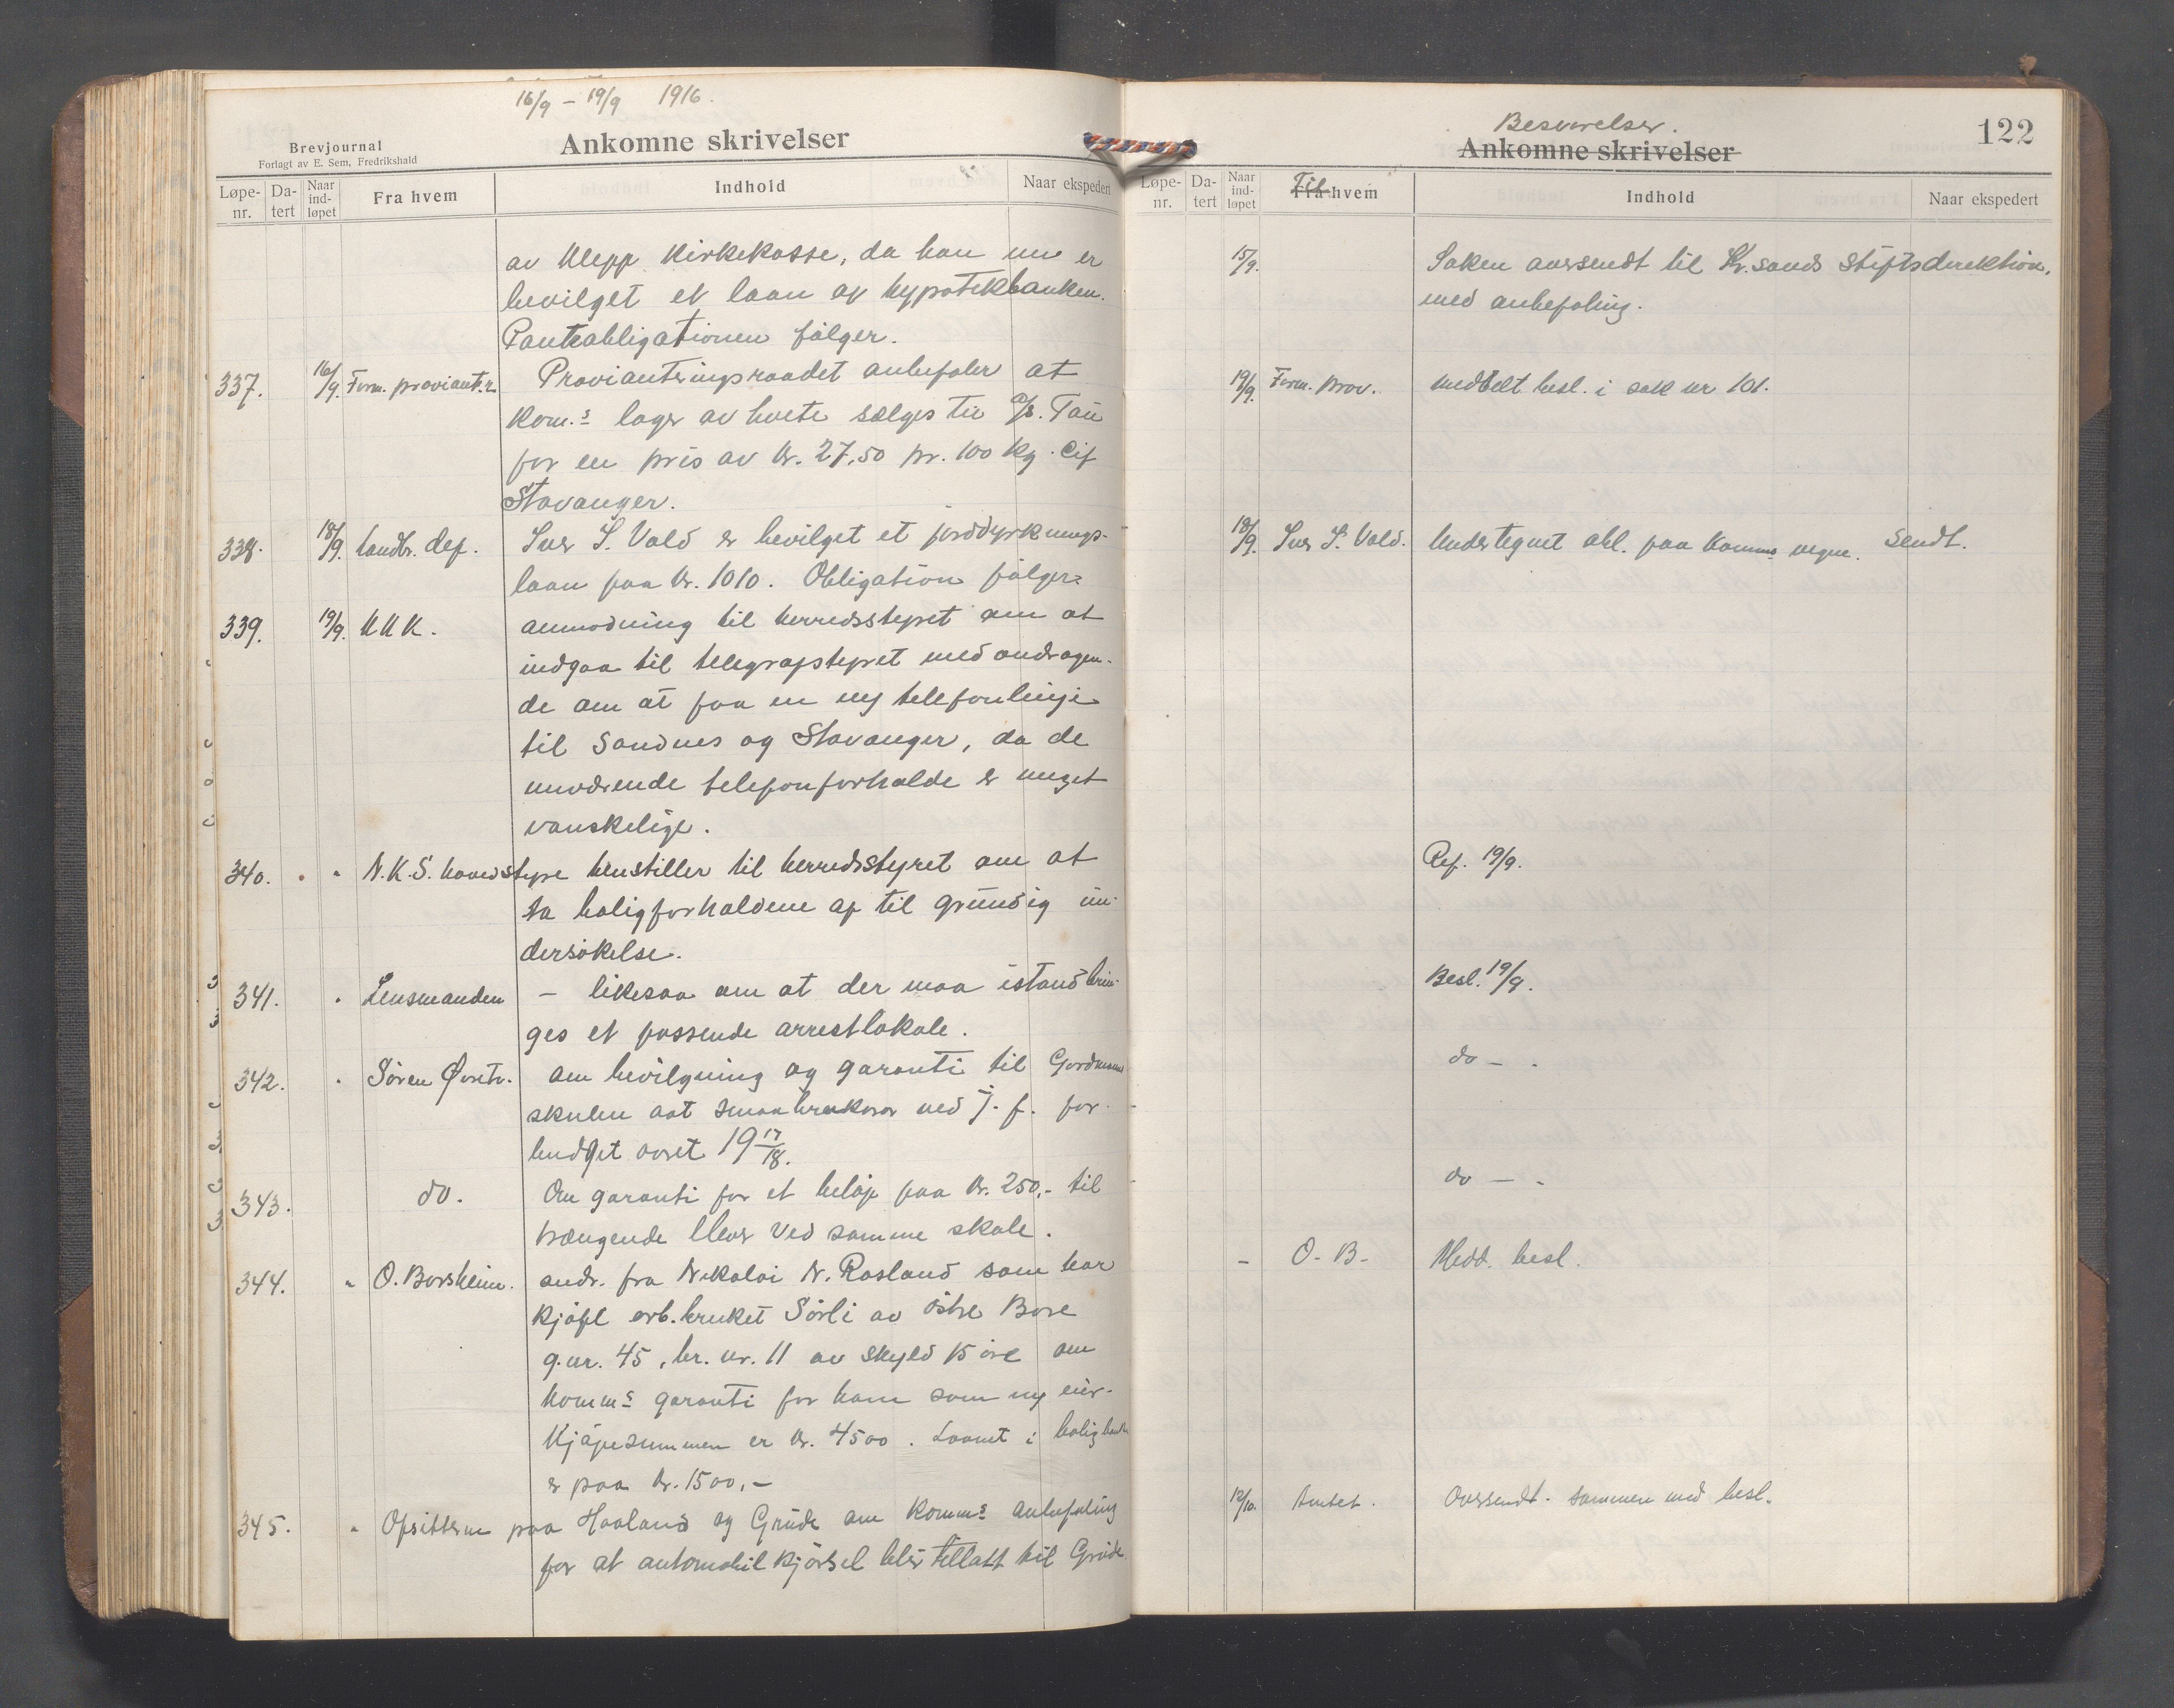 16/9 – 19/9 1916.
Brevjournal
Forlagt av E. Sem, Fredrikshald
Ankomne skrivelser
Løpe-nr. Da-tert Naar ind-løpet Fra hvem Indhold Naar ekspedert
av Klepp Kirkekasse, da han nu er
bevilget et laan av hypotekbanken.
Panteobligationen følger.
337. 16/9. Form. proviant.r. Provianteringsraadet anbefaler at
kom.s lager av hvete sælges til A/S. Tau
for en pris av kr. 27,50 pr. 100 kg. cif
Stavanger.
338. 18/9. Landbr. dep. Iver S. Vold er bevilget et jorddyrknings-
laan paa kr. 1010. Obligation følger.
339. 19/9. K K K. anmodning til herredsstyret om at
indgaa til telegrafstyret med andragen-
de om at faa en ny telefonlinje
til Sandnes og Stavanger, da de
nuværende telefonforholde er meget
vanskelige.
340. " " N.K.S. hovedstyre henstiller til herredsstyret om at
ta boligforholdene op til grundig un-
dersøkelse.
341. " Lensmanden – likesaa om at der maa istandbrin-
ges et passende arrestlokale.
342. " Søren Øvretv. om bevilgning og garanti til Gardmans
skulen aat smaabrukarar ved J. f. for
budget aaret 19 17/18.
343. do. Om garanti for et beløp paa kr. 250,- til
trængende elever ved samme skole.
344. " O. Borsheim. andr. fra Nikolai N. Rosland som har
kjøpt arb.bruket Sørli av østre Bore
g.nr. 45, br. nr. 11 av skyld 15 øre om
komms garanti for ham som ny eier.
Kjøpesummen er kr. 4500. Laanet i boligbank
er paa kr. 1500,-
345. " Opsitterne paa Haaland og Grude om komms anbefaling
for at automobilkjørsel blir tillatt til Grude.
122
Besvarelser.
Ankomne skrivelser
Løpe-nr. Da-tert Naar ind-løpet Til Fra hvem Indhold Naar ekspedert
15/9. Saken oversendt til Kr.sands Stiftsdirektion,
med anbefaling.
19/9. Form. Prov. meddelt besl. i sak nr 101.
18/9. Iver S. Vold. Undertegnet obl. paa komms vegne. Sendt.
Ref. 19/9.
Besl. 19/9.
do – .
do – .
– O. B. Medd. besl.
12/10. Amtet. Oversendt. sammen med besl.